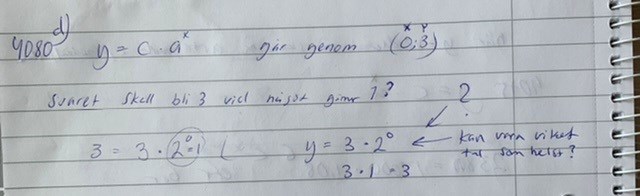 4080 d)
y = C · a^x går genom (0;3)
x y
Svaret skall bli 3 vid något gånger 1?
?
3 = 3 · 2^0=1 ( y = 3 · 2^0 ← kan vara vilket
tal som helst?
3 · 1 = 3